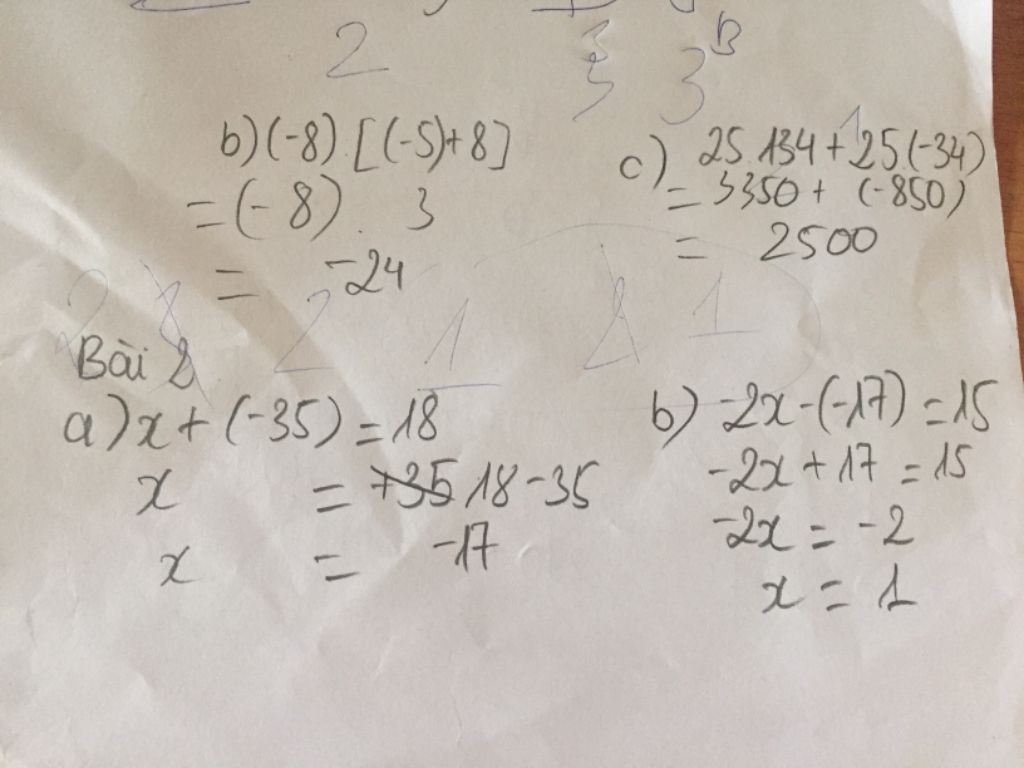 b) (-8) . [(-5)+8]
= (-8) . 3
= -24
c) 25.134 + 25(-34)
= 3350 + (-850)
= 2500
Bài 2
a) x + (-35) = 18
x = +35 18 - 35
x = -17
b) -2x - (-17) = 15
-2x + 17 = 15
-2x = -2
x = 1